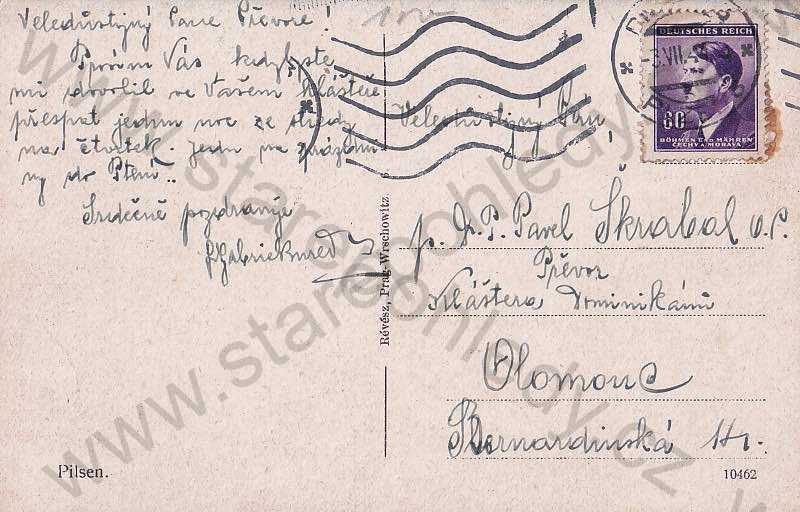 Veledůstojný Pane Převore!
Prosím Vás kdybyste
mi dovolil ve Vašem klášteře
přespat jednu noc ze středy
na čtvrtek. Jedu na prázdni
ny do Ptení.
Srdečně pozdravuje
Pilsen.
Révész, Prag-Wrschowitz.
DEUTSCHES REICH
60
BÖHMEN UND MÄHREN
ČECHY A MORAVA
VII.4
Veledůstojný Pán
p. Dr. P. Pavel Škrabal O.P.
Převor
Kláštera Dominikánů
Olomouc
Bernardinská
10462
www.starepohledy.cz
www.starepohledy.cz